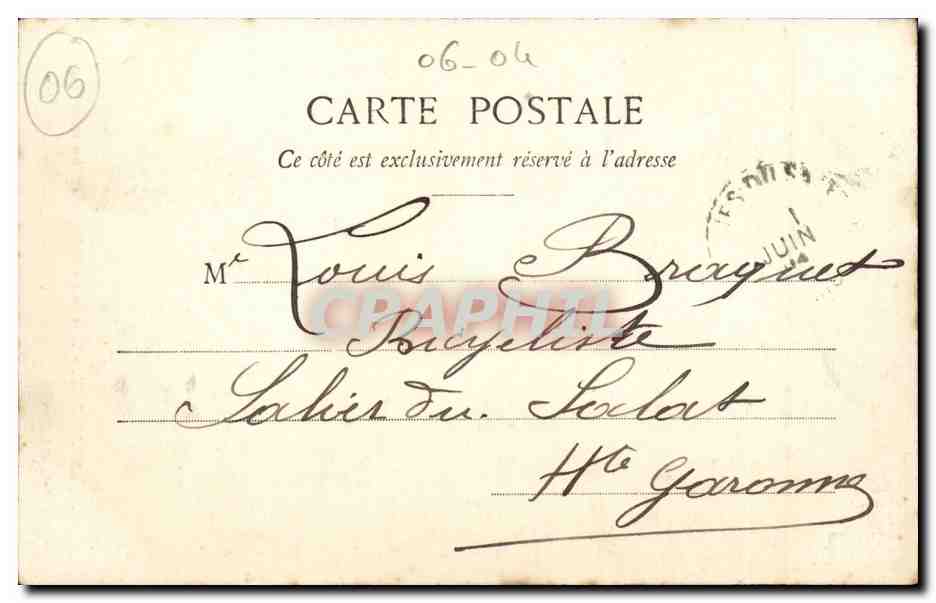 06
06-04
CARTE POSTALE
Ce côté est exclusivement réservé à l'adresse
1
JUIN
Mr Louis Braquet
CPAPHIL
Bicycliste
Salies du Salat
Hte Garonne